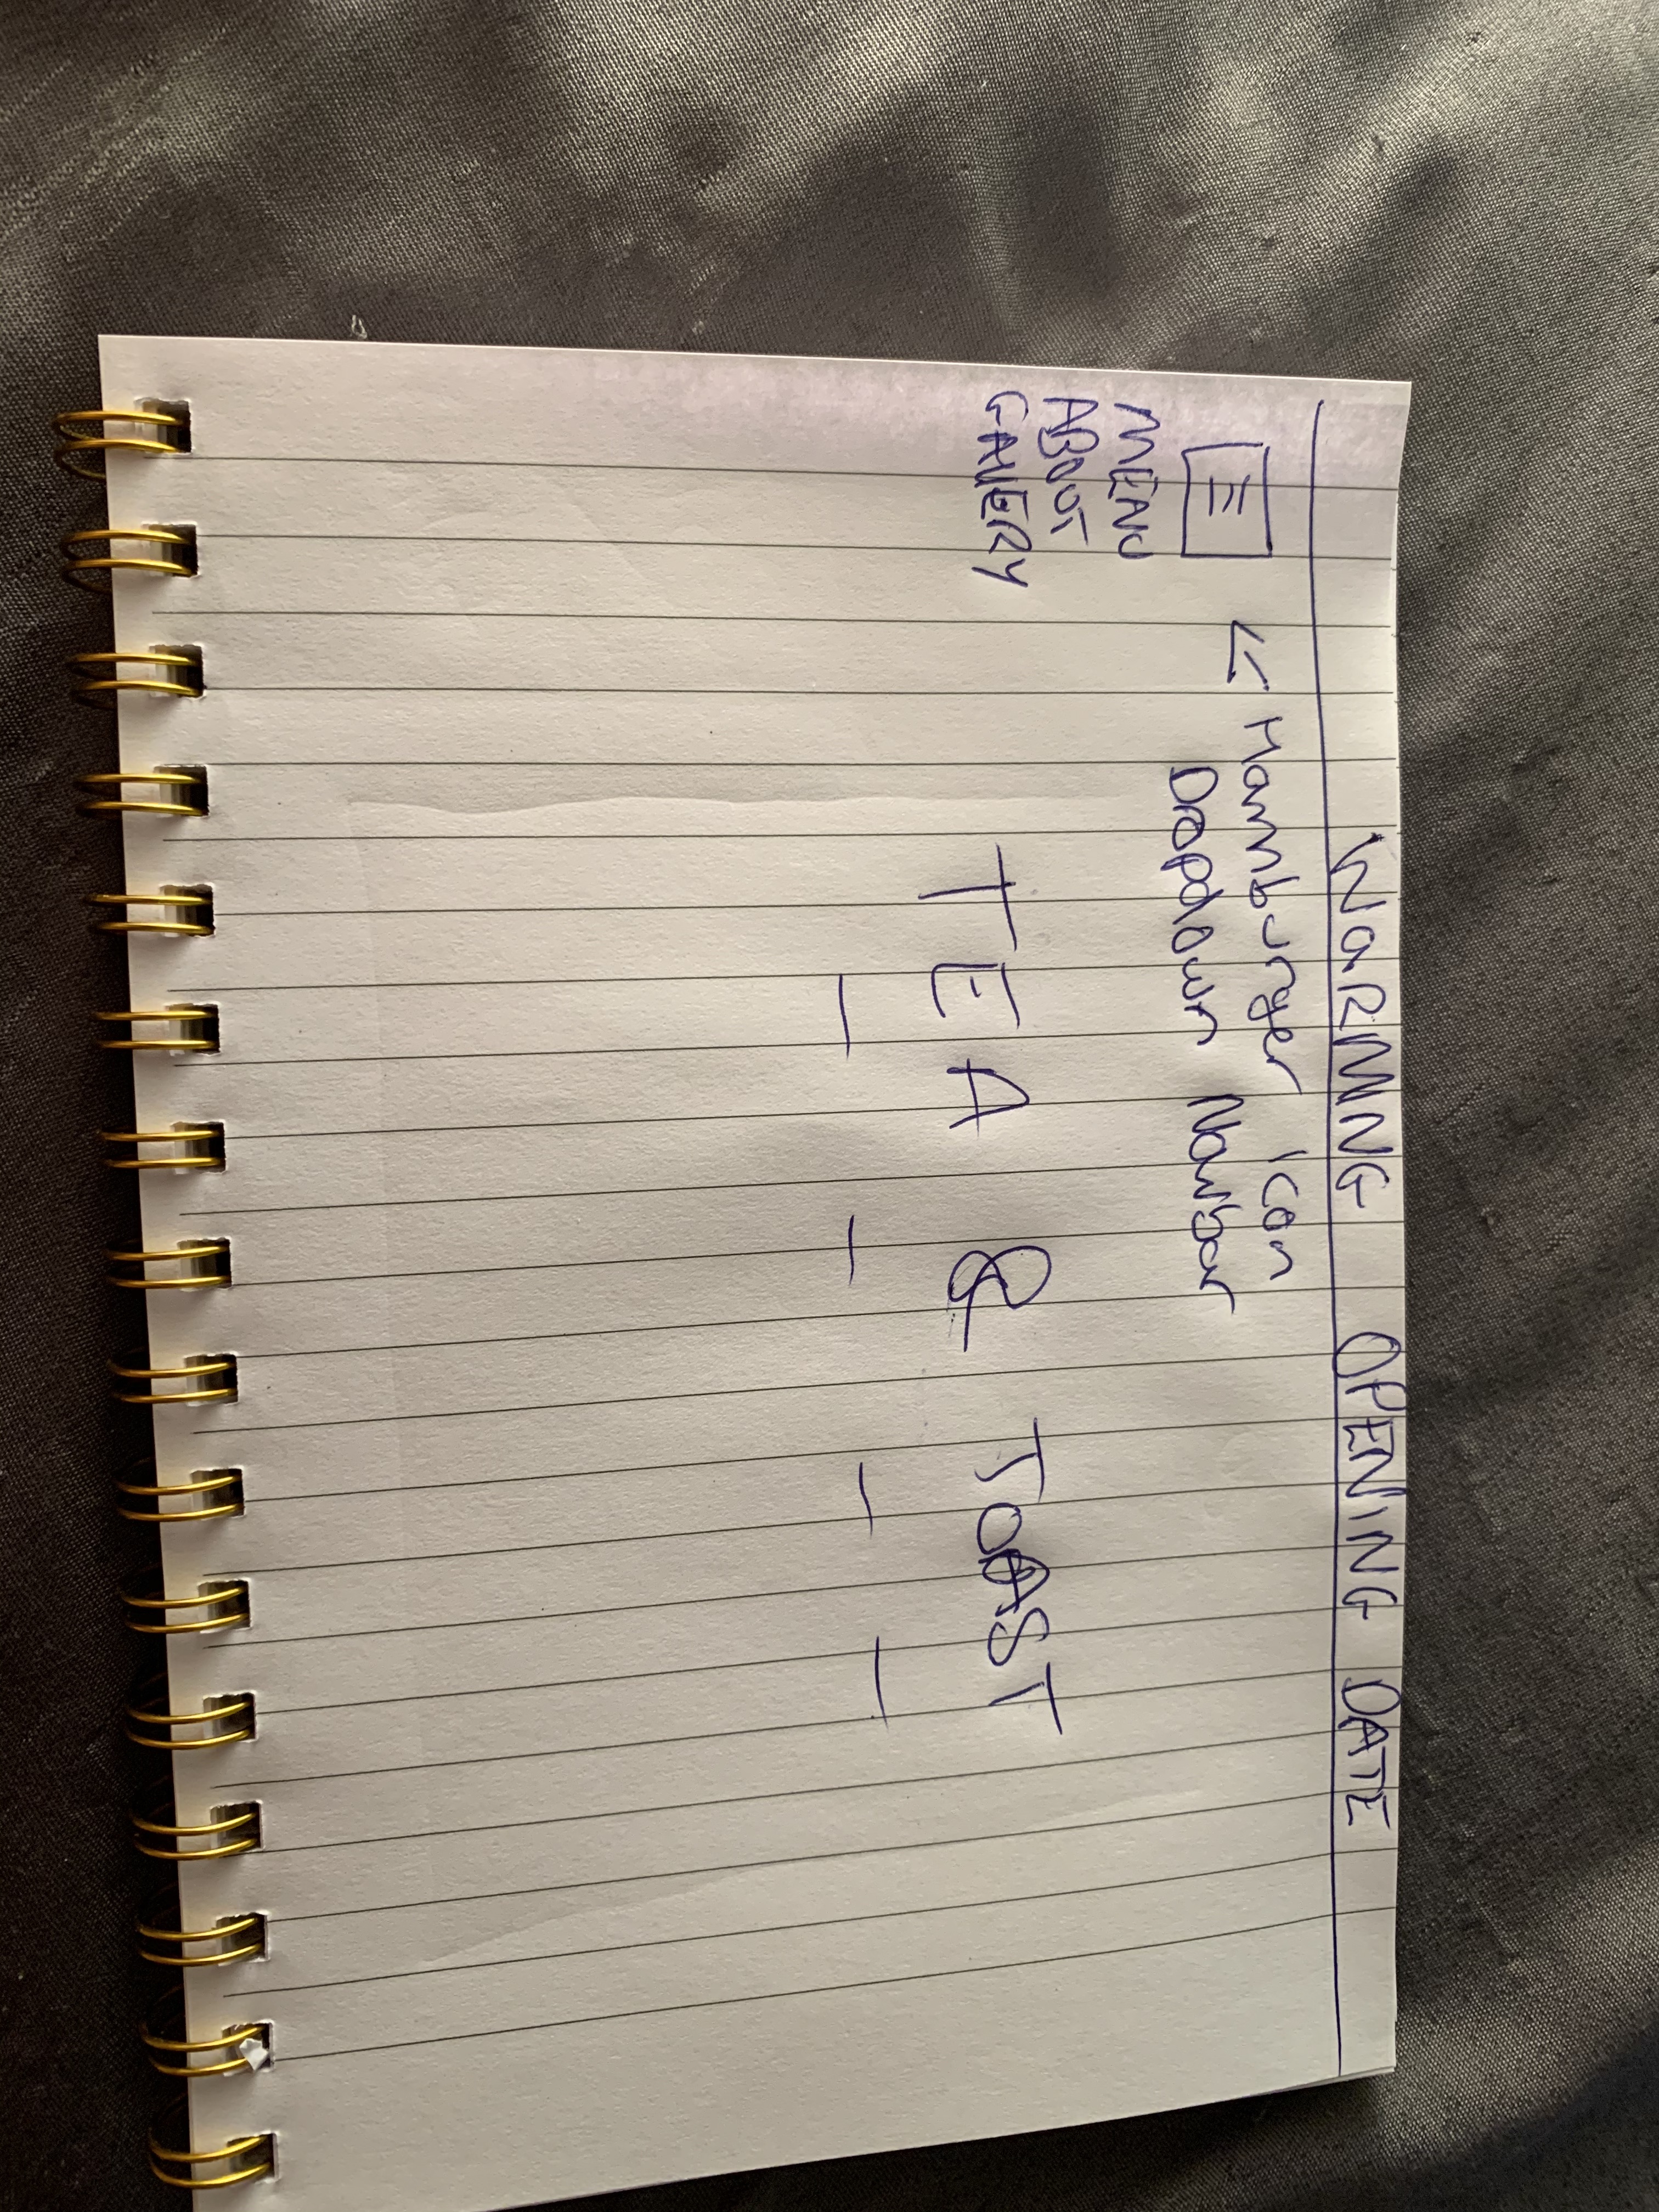 WaRMING OPENING DATE
← Hamburger icon
Dropdown Navbar
MENU
ABOUT
GALLERY
TEA & TOAST